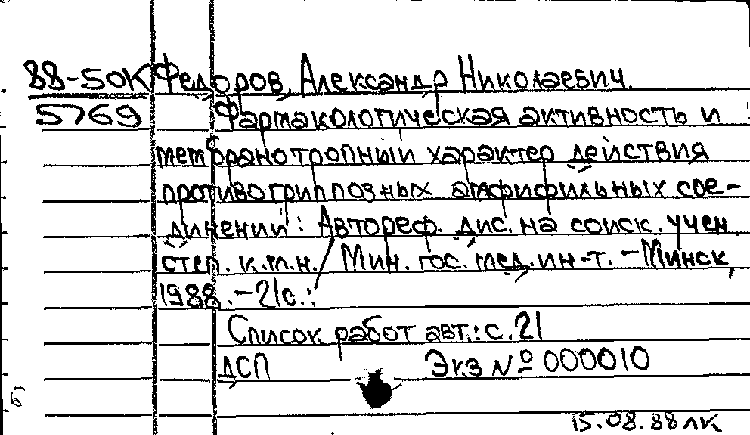 88-50К Федоров, Александр Николаевич.
5769 Фармакологическая активность и
мембранотропный характер действия
противогриппозных амфифильных сое-
динений: Автореф. дис. на соиск. учен
степ. к.м.н. / Мин. гос. мед. ин-т. - Минск,
1988. - 21с.:
Список работ авт.: с. 21
ДСП Экз № 000010
15.08.88 лк